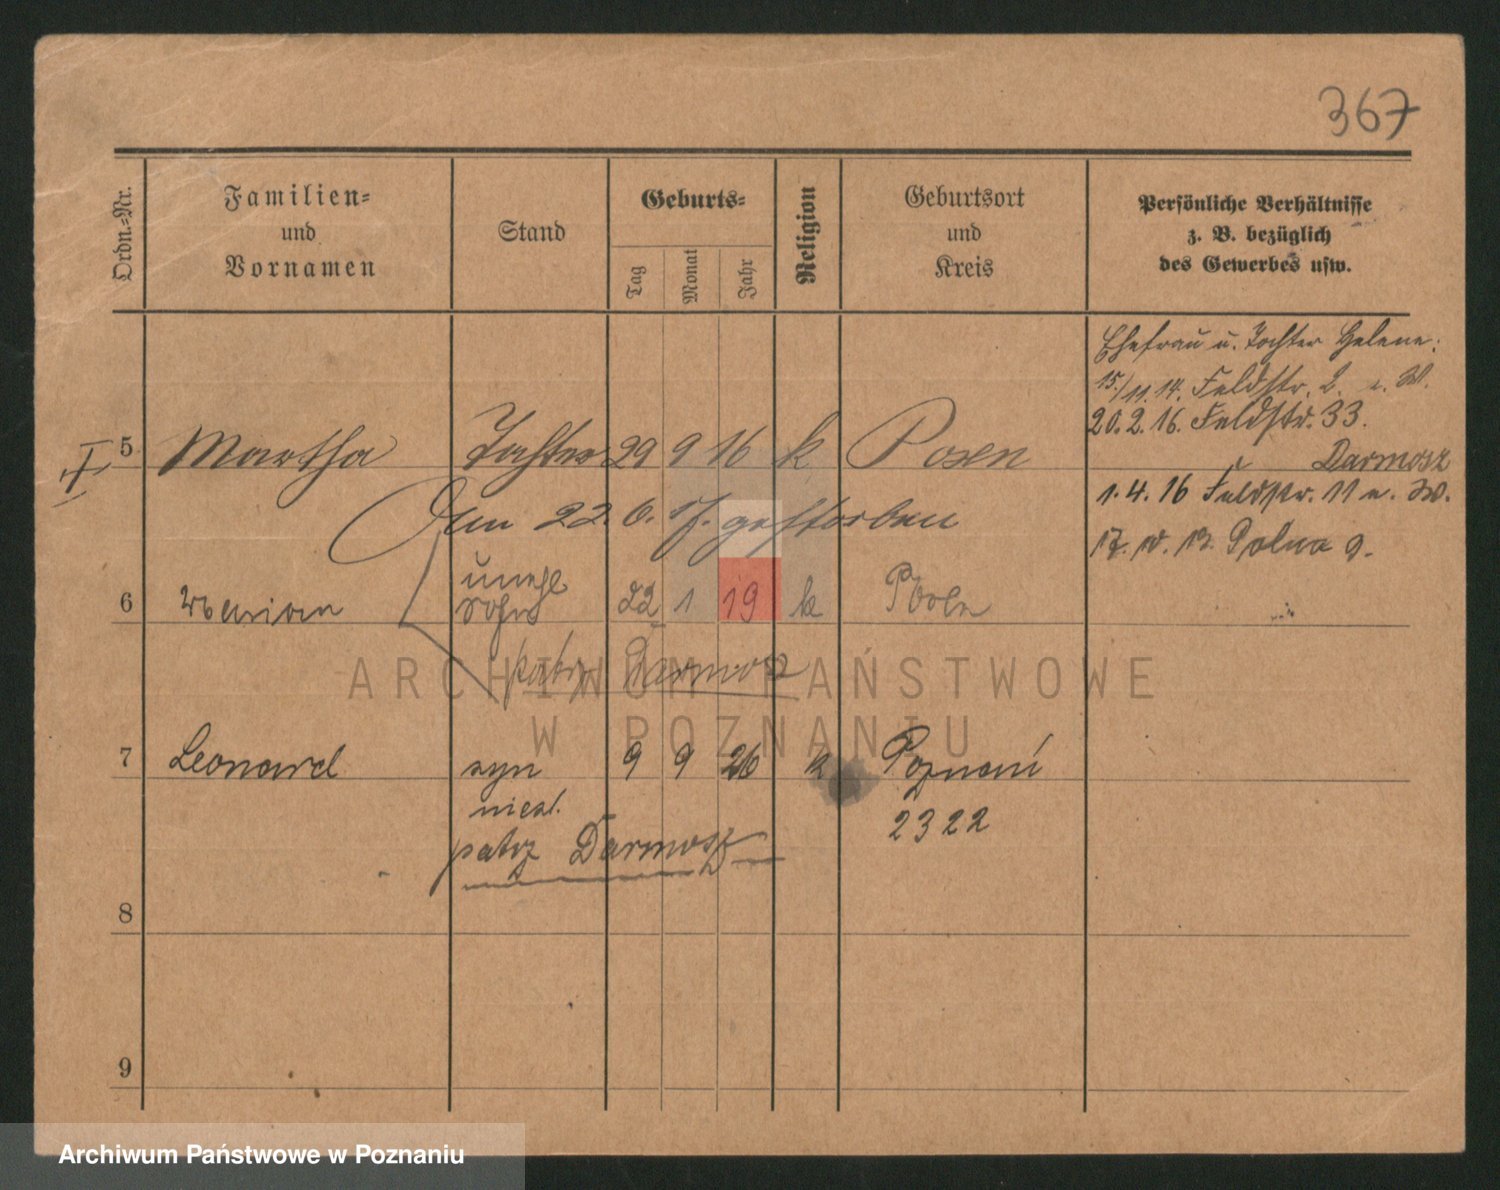 367
Ordn.-Nr.
Familien-
und
Vornamen
Stand
Geburts-
Tag
Monat
Jahr
Religion
Geburtsort
und
Kreis
Persönliche Verhältnisse
z. B. bezüglich
des Gewerbes usw.
Ehefrau u. Tochter Helene:
15./11.14. Feldstr. 2. u. W.
20.2.16. Feldstr. 33.
Darmosz
1.4.16 Feldstr. 11 u. W.
Polna 9.
5 Martha Tochter 29 9 16 k Posen
Am 22. 6. 17. gestorben
6 Marian unehl
Sohn 22 1 19 k Posen
patrz Darmosz
7 Leonard syn 9 9 26 k Poznań
niesl. 2322
patrz Darmosz
8
9
ARCHIWUM PAŃSTWOWE
W POZNANIU
Archiwum Państwowe w Poznaniu